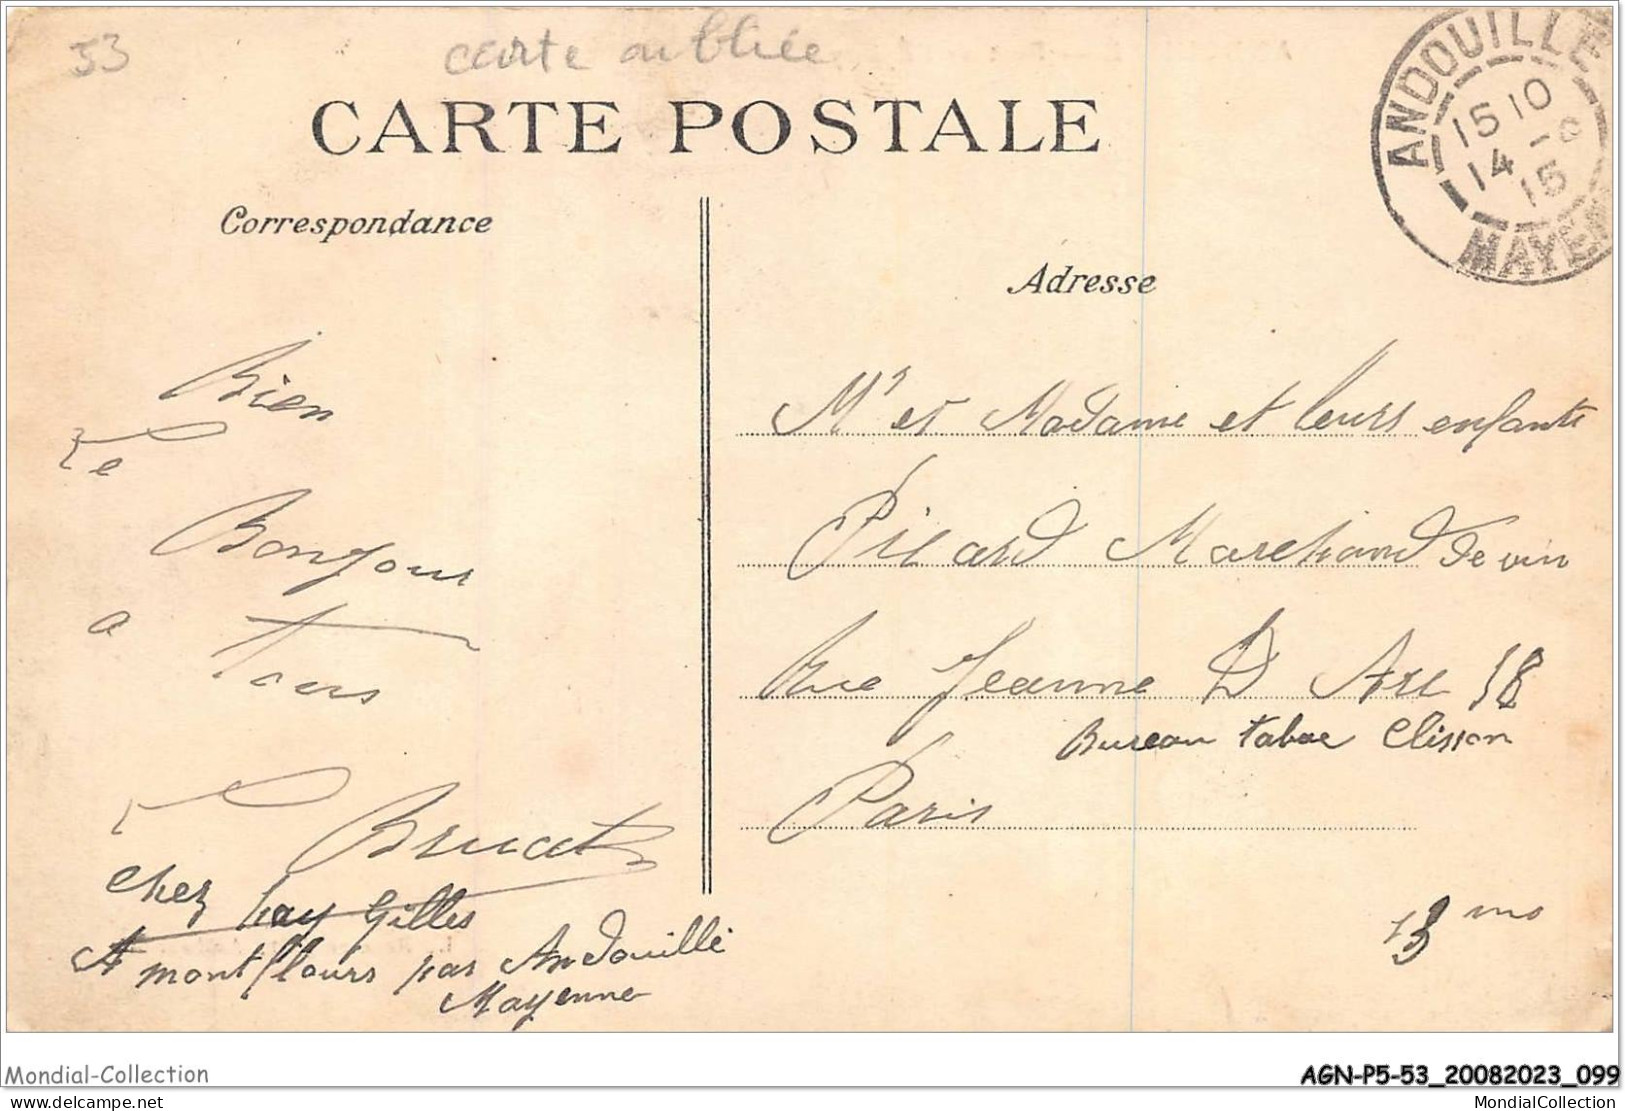 53
carte oubliée
CARTE POSTALE
ANDOUILLÉ
15 10
14 -8
15
MAYEN
Correspondance
Adresse
Bien
Le
Bonjour
a tous
Bruat
Chez Lay Gilles
A montflours par Andouillé
Mayenne
Mr et Madame et leurs enfants
Picard Marchand de vin
Rue Jeanne D Arc 18
Bureau tabac Clisson
Paris
13 me
Mondial-Collection
AGN-P5-53_20082023_099
www.delcampe.net
MondialCollection